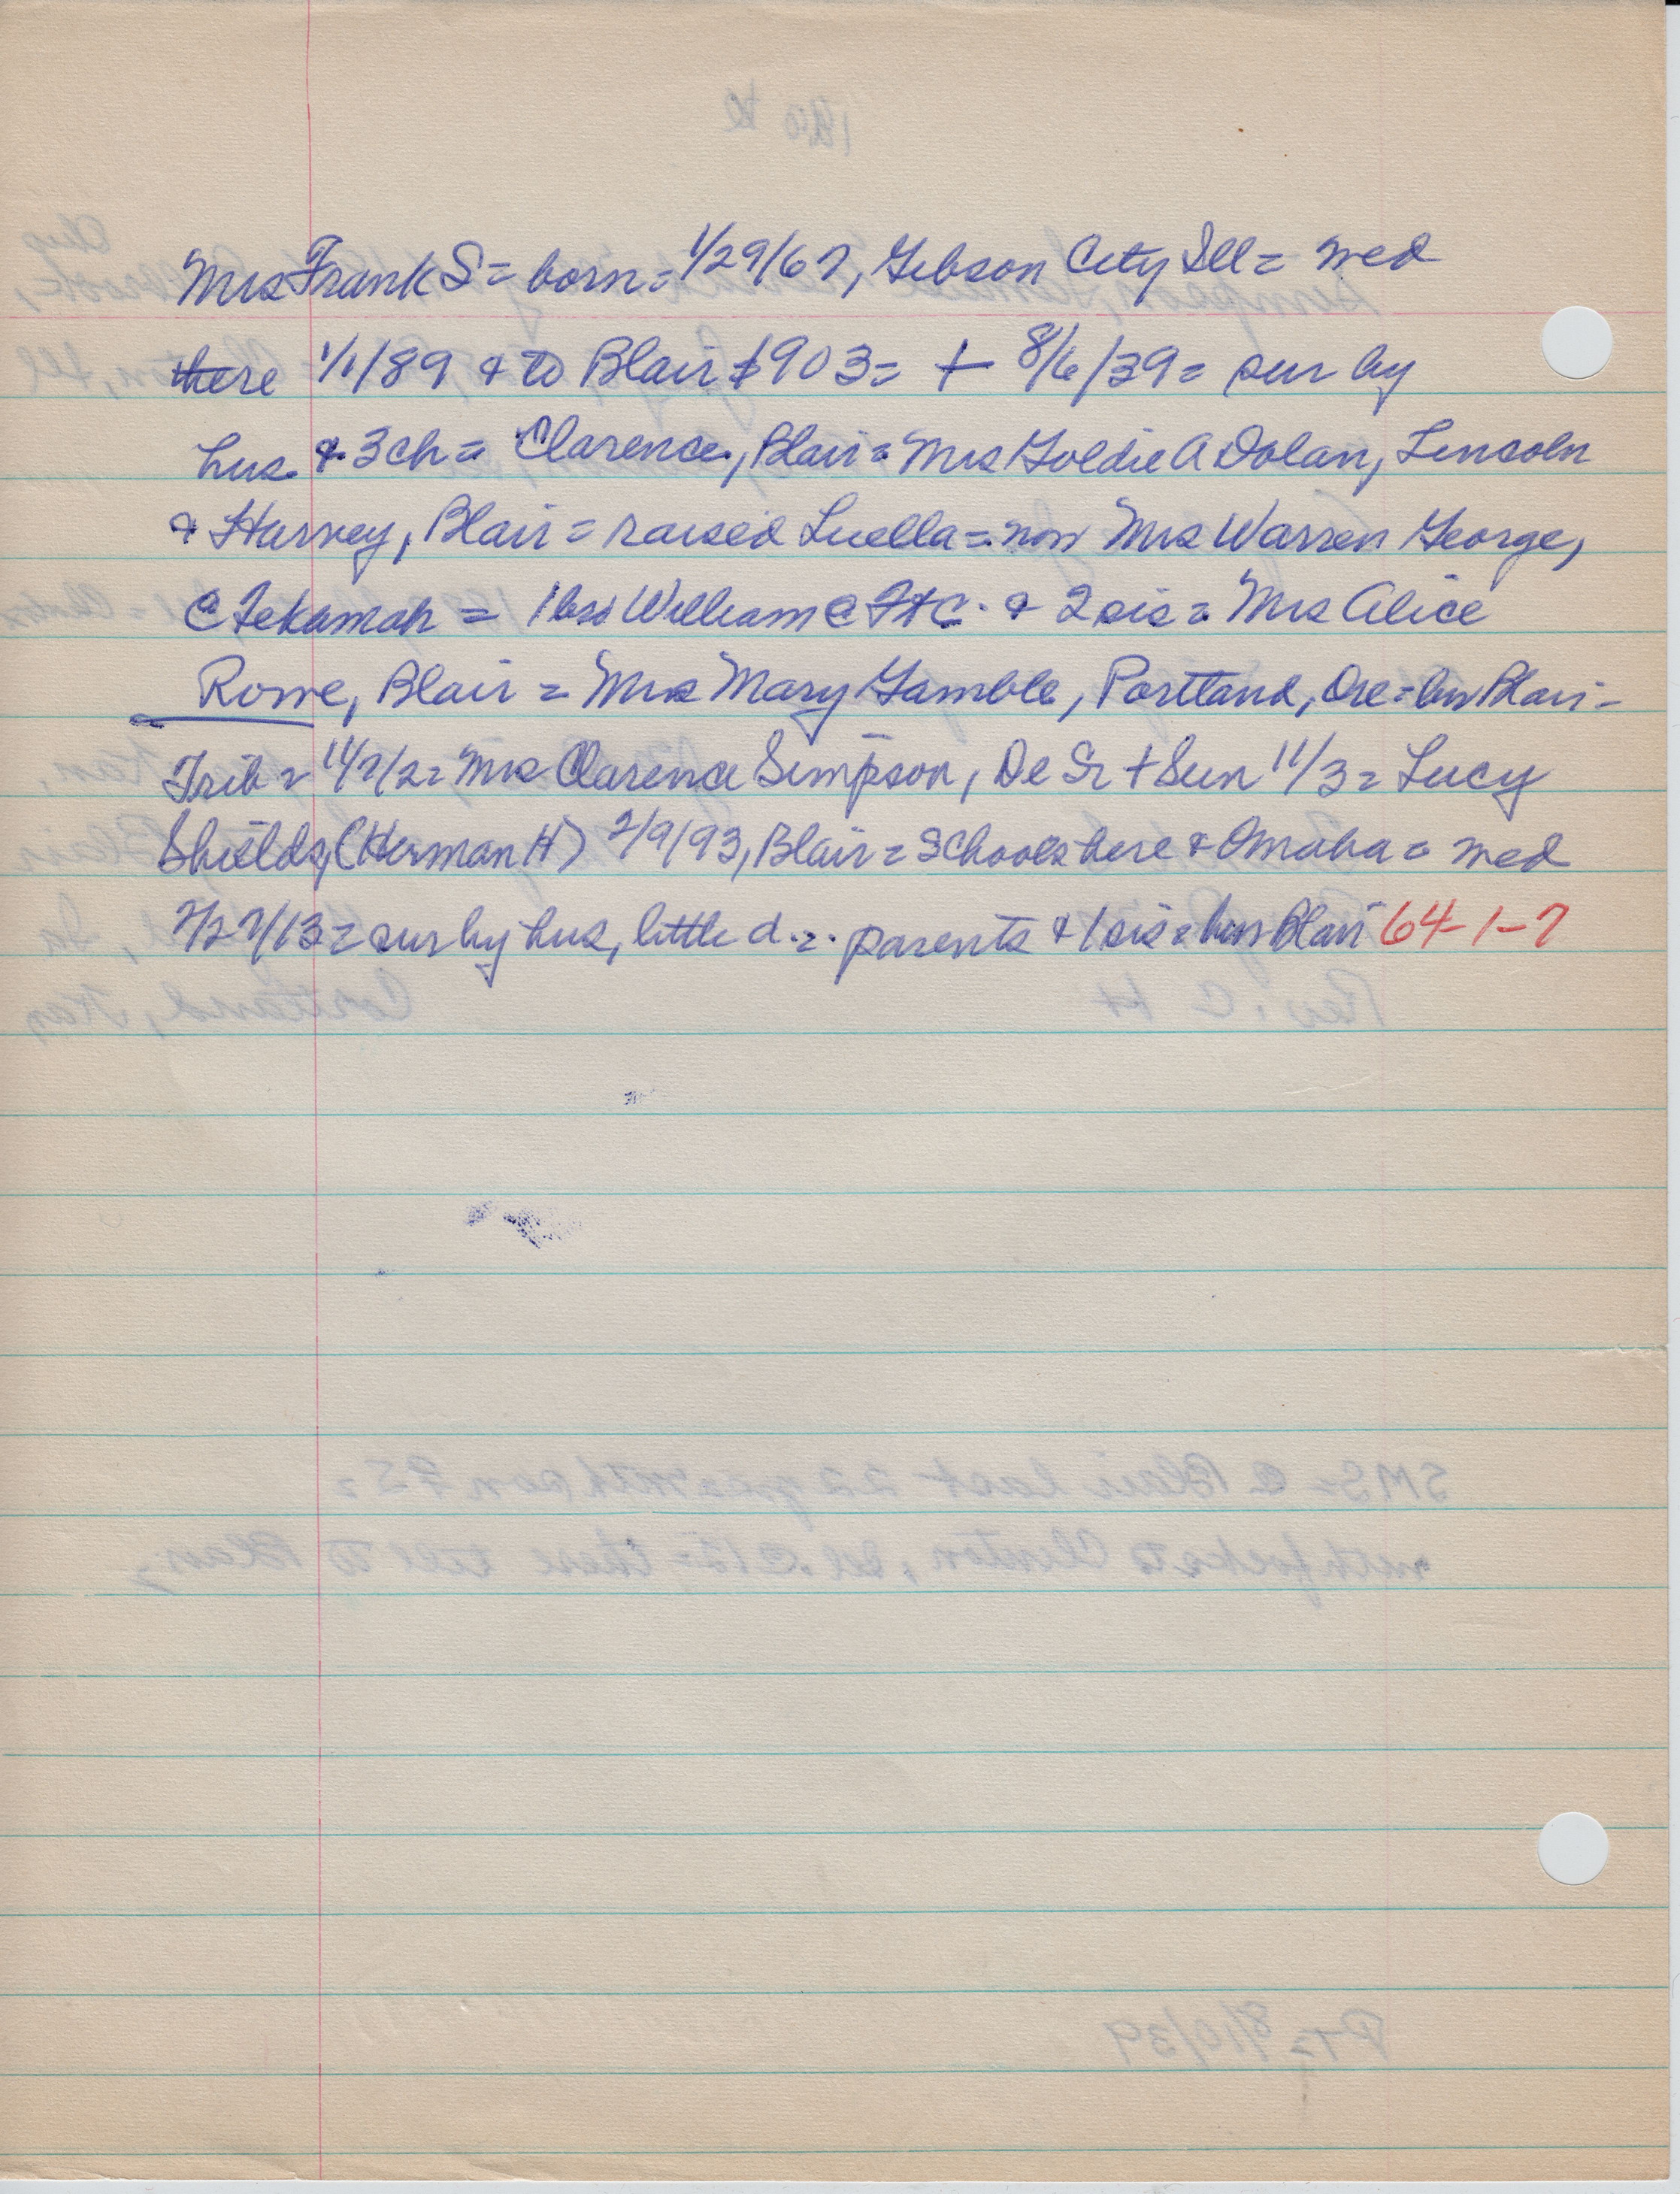 Mrs Frank S = born = 1/29/67, Gibson City Ill = med
there 1/1/89 & to Blair 1903 = + 8/6/39 = sur by
hus. & 3 ch = Clarence, Blair = Mrs Goldie A Dolan, Lincoln
& Harvey, Blair = raised Luella = now Mrs Warren George,
@ Tekamah = 1 bro William @ Ft C. & 2 sis = Mrs Alice
Rowe, Blair = Mrs Mary Gamble, Portland, Ore = bur Blair =
Trib = Mrs Clarence Simpson, De Sr + Sun 11/3 = Lucy
Shields, (Herman H) 2/9/93, Blair = Schools here & Omaha = med
2/27/13 = sur by hus, little d. = . parents & 1 sis = bur Blair 64-1-7